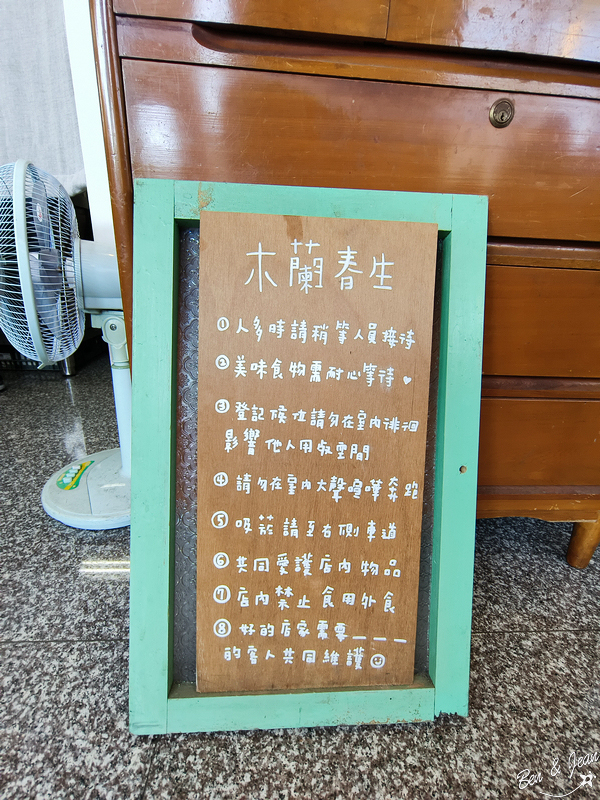 木蘭春生
①人多時請稍等人員接待
②美味食物需耐心等待♥
③登記候位請勿在室內徘徊
影響他人用餐空間
④請勿在室內大聲喧嘩奔跑
⑤吸菸請至右側車道
⑥共同愛護店內物品
⑦店內禁止食用外食
⑧好的店家需要___
的客人共同維護
Ben & Jean